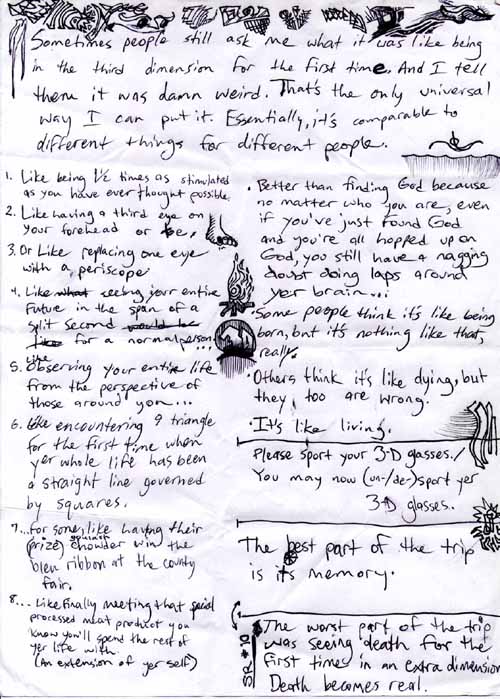 Sometimes people still ask me what it was like being
in the third dimension for the first time. And I tell
them it was damn weird. That's the only universal
way I can put it. Essentially, it's comparable to
different things for different people.
1. Like being 1½ times as stimulated
as you have ever thought possible.
2. Like having a third eye on
your forehead or toe.
3. Or Like replacing one eye
with a periscope
4. Like what seeing your entire
future in the span of a
split second would be
like for a normal person...
5. Like Observing your entire life
from the perspective of
those around you...
6. Like encountering a triangle
for the first time when
yer whole life has been
a straight line governed
by squares.
7...for some, like having their
(prize) chowder win the
bleu ribbon at the county
fair.
8... Like finally meeting that special
processed meat product you
know you'll spend the rest of
yer life with.
(An extension of yer self)
• Better than finding God because
no matter who you are, even
if you've just found God
and you're all hopped up on
God, you still have a nagging
doubt doing laps around
yer brain...
• Some people think it's like being
born, but it's nothing like that,
really.
• Others think it's like dying, but
they too are wrong.
• It's like living.
Please sport your 3-D glasses./
You may now (un-/de-)sport yer
3-D glasses.
The best part of the trip
is its memory.
The worst part of the trip
was seeing death for the
first time in an extra dimension
Death becomes real.